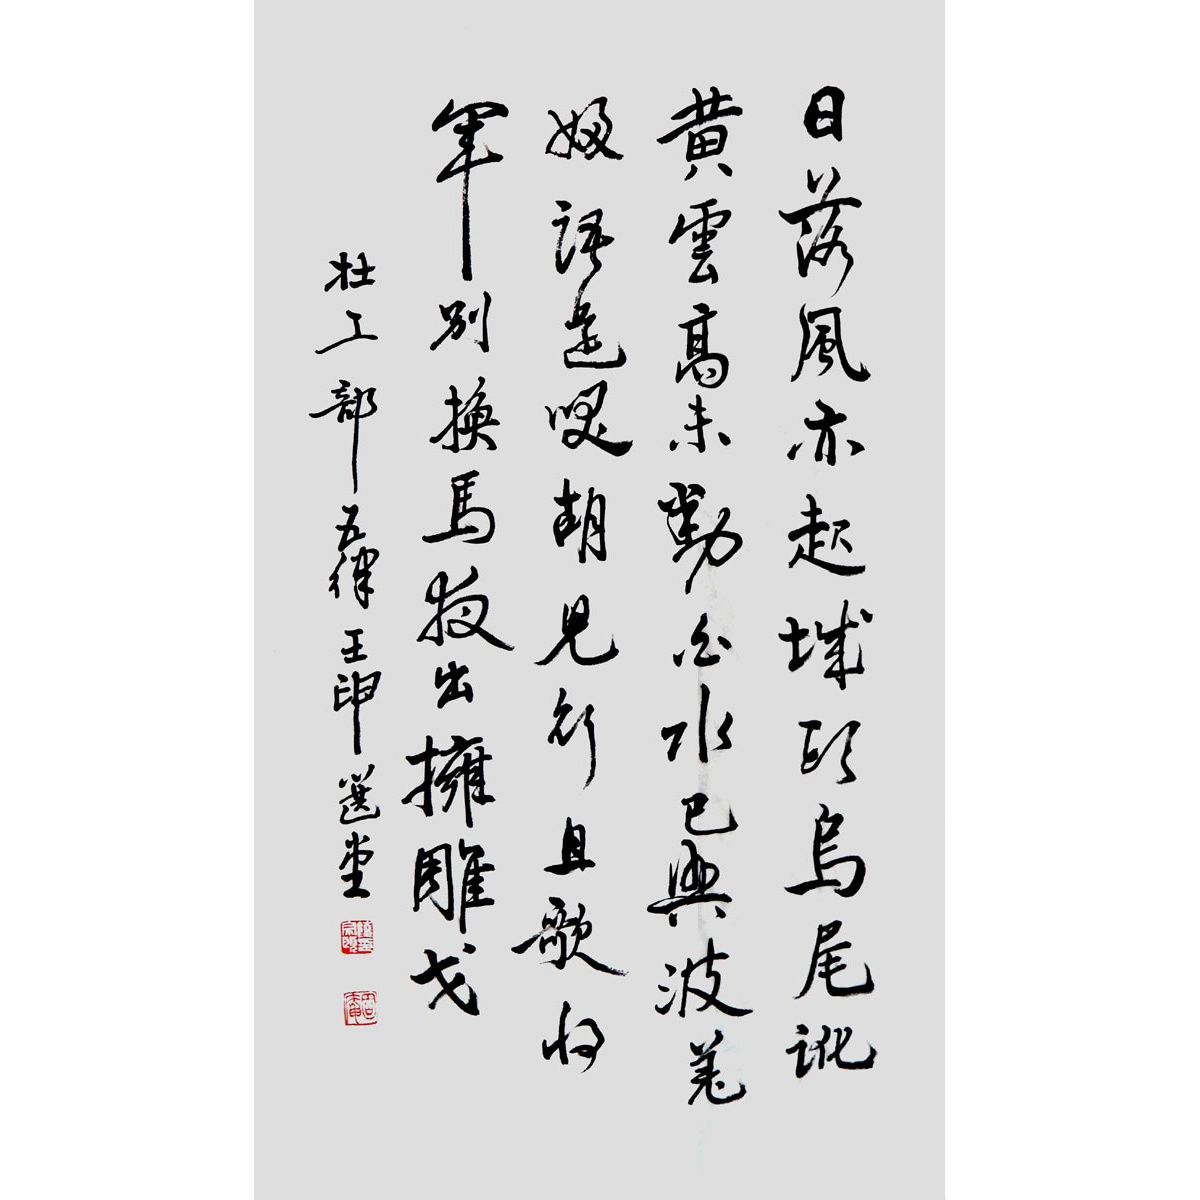 日落風亦起城頭烏尾訛
黃雲高未動白水已興波羌
婦語還哭胡兒行且歌將
軍別換馬夜出擁雕戈
杜工部五律 壬申 選堂